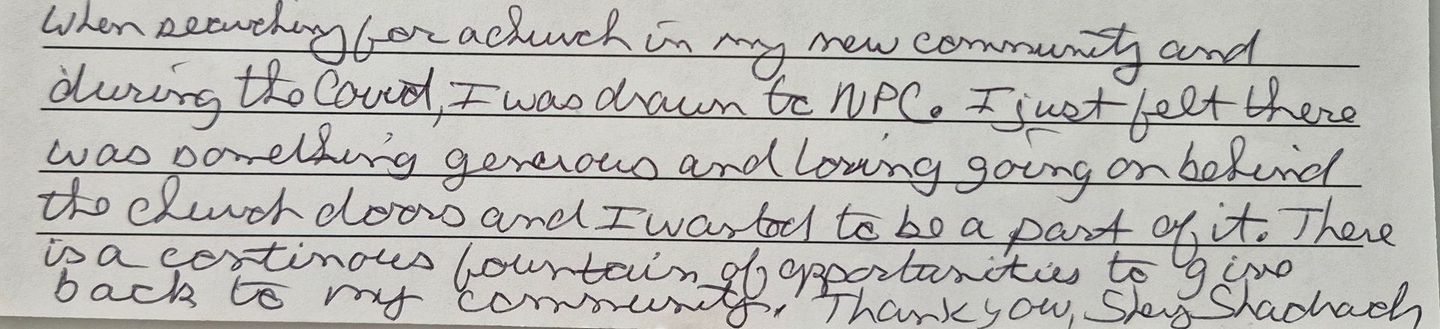 When searching for a church in my new community and
during the Covid, I was drawn to NPC. I just felt there
was something generous and loving going on behind
the church doors and I wanted to be a part of it. There
is a continous fountain of opportunities to give
back to my community. Thank you,